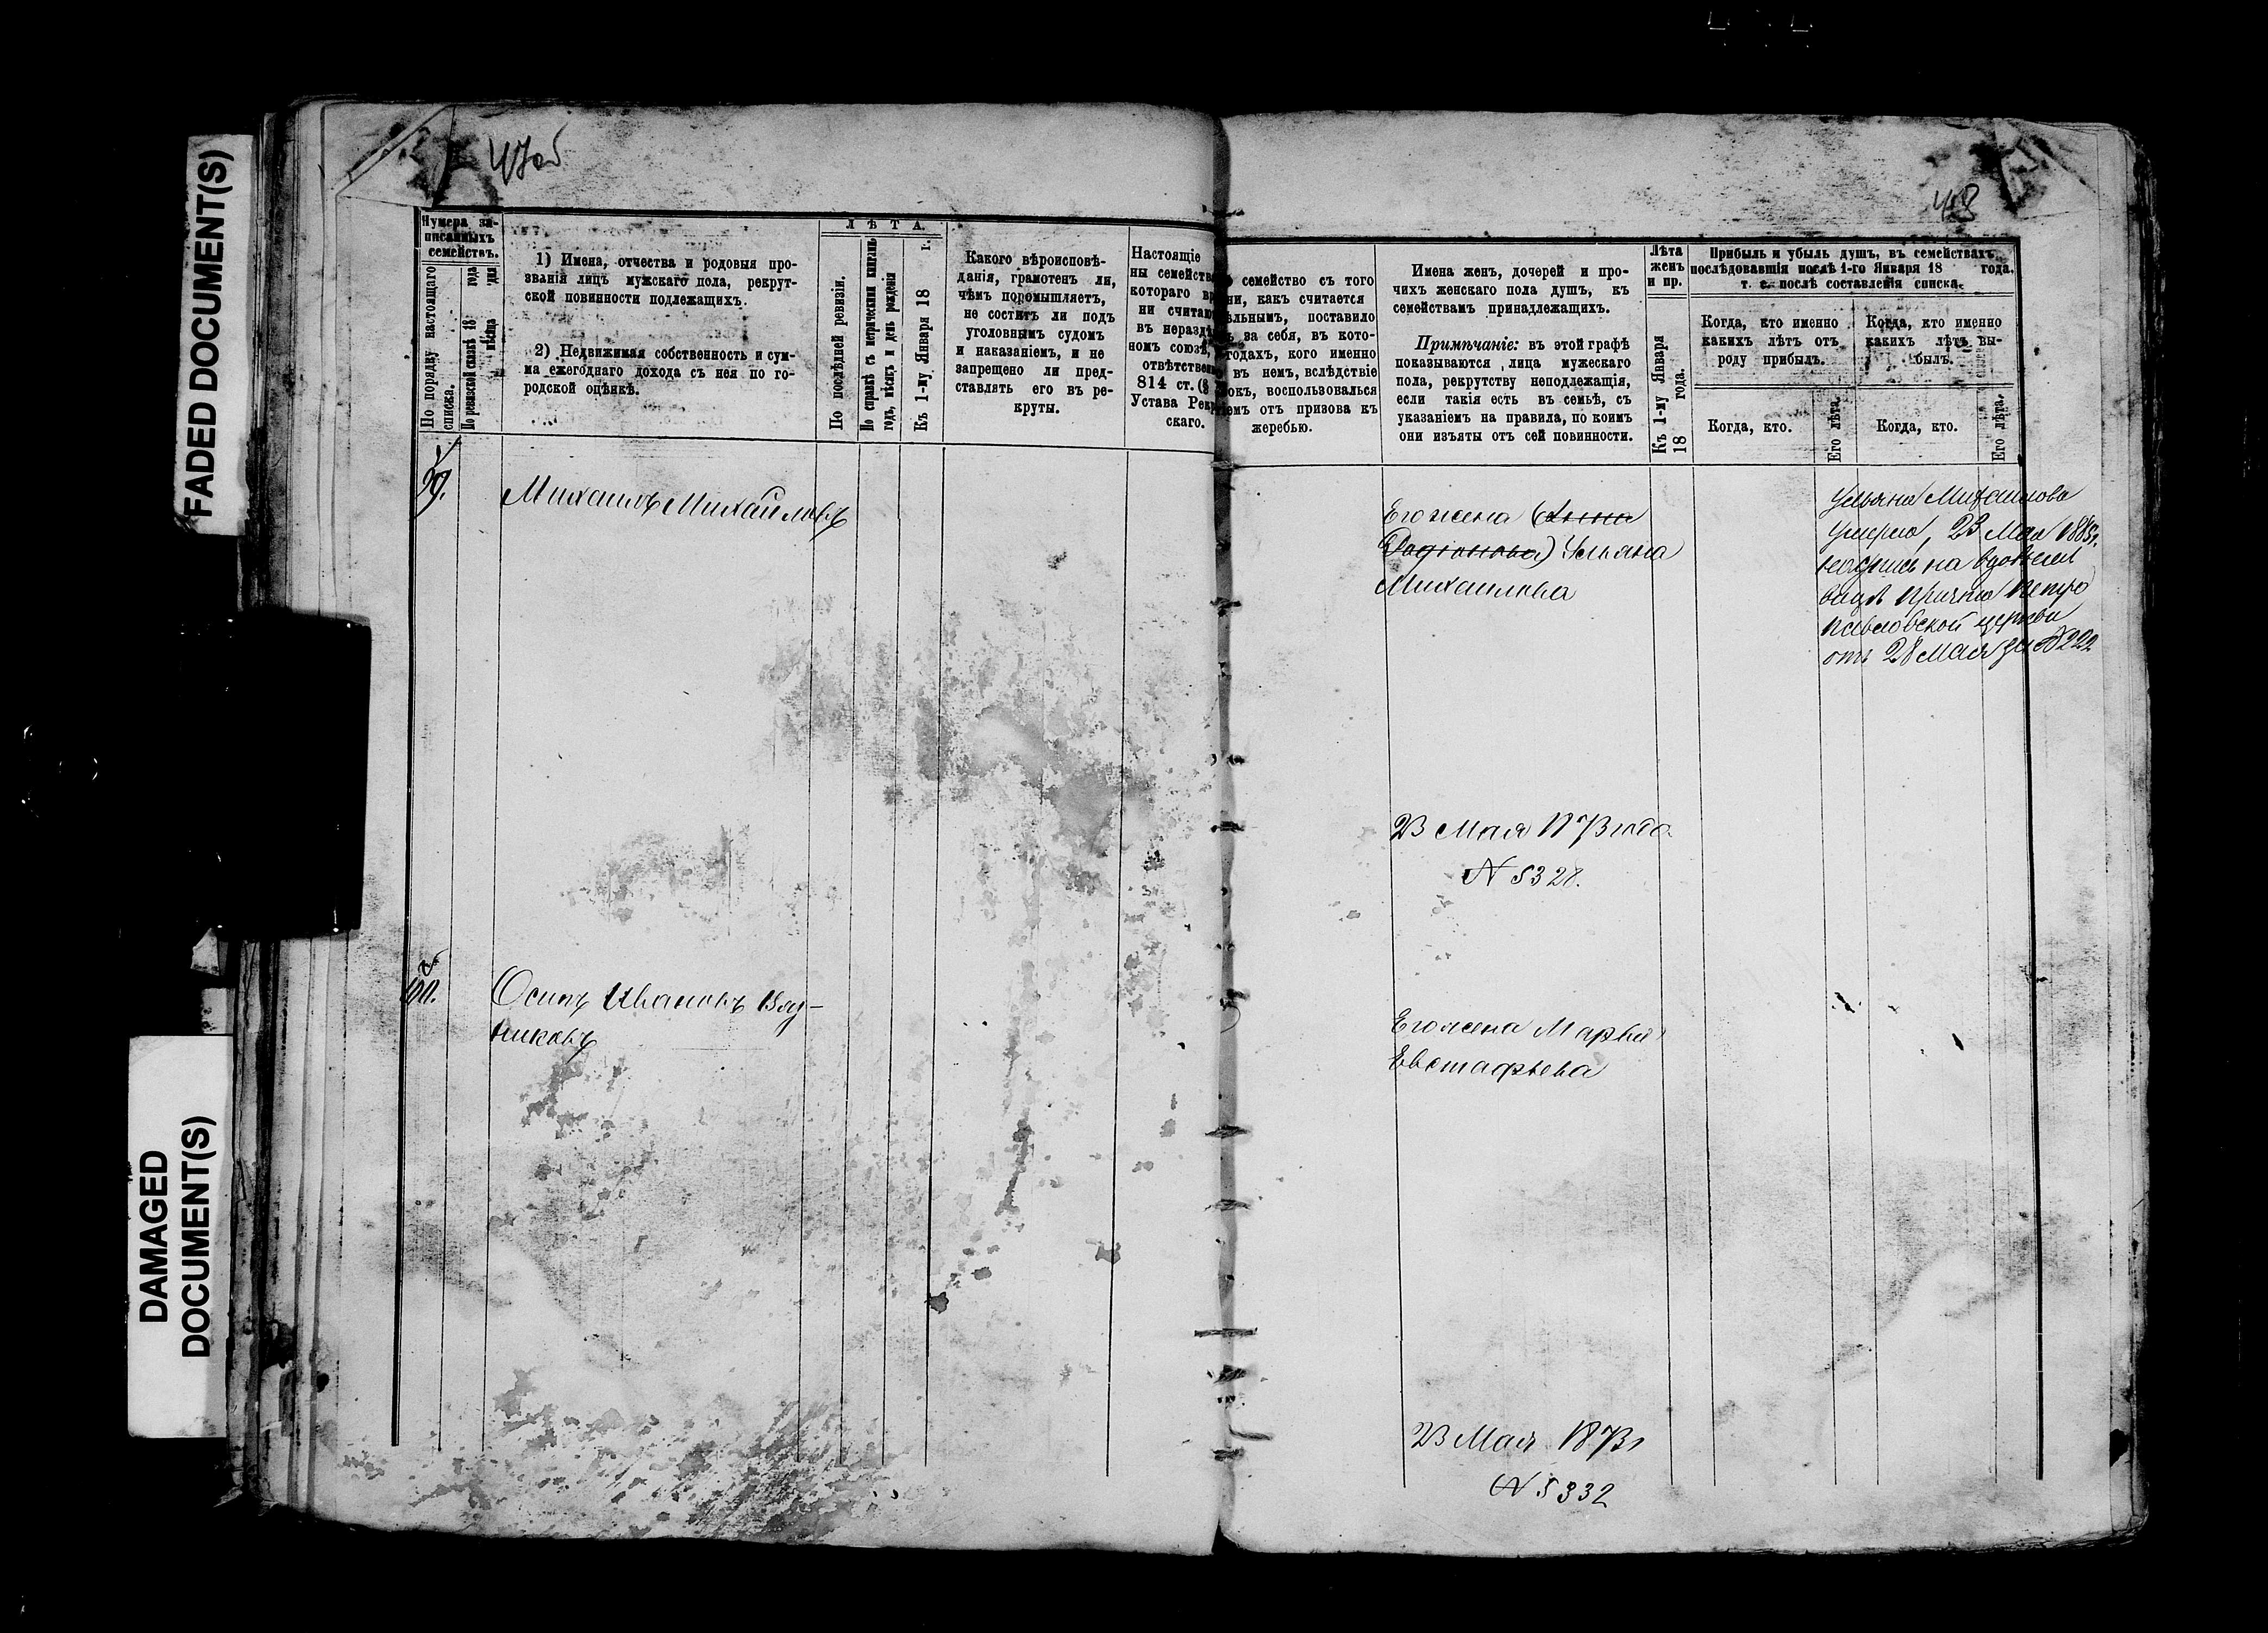 FADED DOCUMENT(S)
DAMAGED
DOCUMENT(S)
47об
48
Нумера за-
писанныхъ
семействъ.
По порядку настоящаго
списка.
По ревизской сказкѣ 18 года
мѣсяца дня
1) Имена, отчества и родовыя про-
званія лицъ мужскаго пола, рекрут-
ской повинности подлежащихъ.
2) Недвижимая собственность и сум-
ма ежегоднаго дохода съ нея по го-
родской оцѣнкѣ.
ЛѢТА.
По послѣдней ревизіи.
По справкѣ съ метрическими книгами
годъ, мѣсяцъ и день рожденія
Къ 1-му Января 18 г.
Какого вѣроисповѣ-
данія, грамотенъ ли,
чѣмъ промышляетъ,
не соститъ ли подъ
уголовнымъ судомъ
и наказаніемъ, и не
запрещено ли пред-
ставлять его въ ре-
круты.
Настоящіе
ны семейства
котораго вр
ни считаю
въ неразд
номъ союзѣ,
отвѣтствен
814 ст. (§
Устава Рекр
скаго.
семейство съ того
ни, какъ считается
ельнымъ, поставило
за себя, въ кото-
годахъ, кого именно
въ немъ, вслѣдствіе
окъ, воспользовался
емъ отъ призова къ
жеребью.
Имена женъ, дочерей и про-
чихъ женскаго пола душъ, къ
семействамъ принадлежащихъ.
Примѣчаніе: въ этой графѣ
показываются лица мужескаго
пола, рекрутству неподлежащія,
если такія есть въ семьѣ, съ
указаніемъ на правила, по коимъ
они изъяты отъ сей повинности.
Лѣта
женъ
и пр.
Къ 1-му Января
18 года.
Прибыль и убыль душъ, въ семействахъ
послѣдовавшія послѣ 1-го Января 18 года.
т. е. послѣ составленія списка.
Когда, кто именно
какихъ лѣтъ отъ
роду прибылъ.
Когда, кто именно
какихъ лѣтъ вы-
былъ.
Когда, кто.
Его лѣта.
Когда, кто.
Его лѣта.
Михаилъ Михайловъ
Его жена (Анна
Родіонова) Ульяна
Михаилова
Ульяна Михаилова
умерла, 23 Мая 1885г.
надпись на вдовьем
видѣ причта Петро
павловской церкви
отъ 28 Мая за № 222
23 Мая 1873 года
№ 5328.
60.
Осипъ Ивановъ Вяз-
никовъ
Его жена Марья
Евстафьева
23 Мая 1873 г
№ 5332